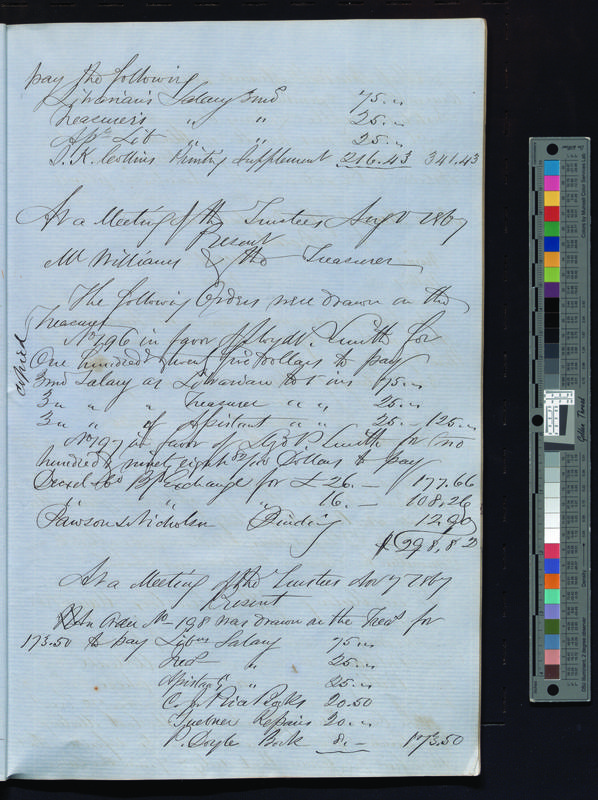 pay the following
Librarian's Salary 3 mos 75.〃
Treasurer's 〃 〃 25.〃
Asst Lib 〃 〃 25.〃
T. K. Collins Printing Supplement 216.43 341.43
At a Meeting of the Trustees Aug 1867
present
Mr Williams & the Treasurer
The following Orders were drawn on the
Treasurer
No 196 in favor of Lloyd P. Smith for
One hundred & twenty five Dollars to pay
copied
3 mo Salary as Librarian to 1 ins 75.〃
3 〃 〃 〃 Treasurer 〃 〃 25.〃
3 〃 〃 of Assistant 〃 〃 25.- 125.〃
No 197 in favor of Lloyd P. Smith for two
hundred & ninety eight 82/100 Dollars to pay
Drexel & Co Bs Exchange for £ 26.- 177.66
〃 〃 16.- 108.26
Pawson & Nicholson Binding 12.90
$ 298.82
At a Meeting of the Trustees Nov 7 1867
Present
An Order No 198 was drawn on the Treas for
173.50 to pay Libns Salary 75.〃
Treas 〃 25.〃
Assistant 〃 25.〃
Books 20.50
Repairs 20.〃
P. Doyle Book 8.- 173.50